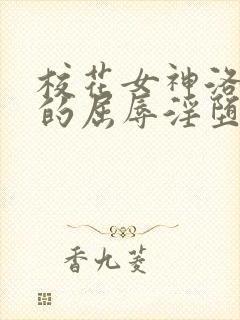 校花女神洛
的屈辱淫堕
香九菱